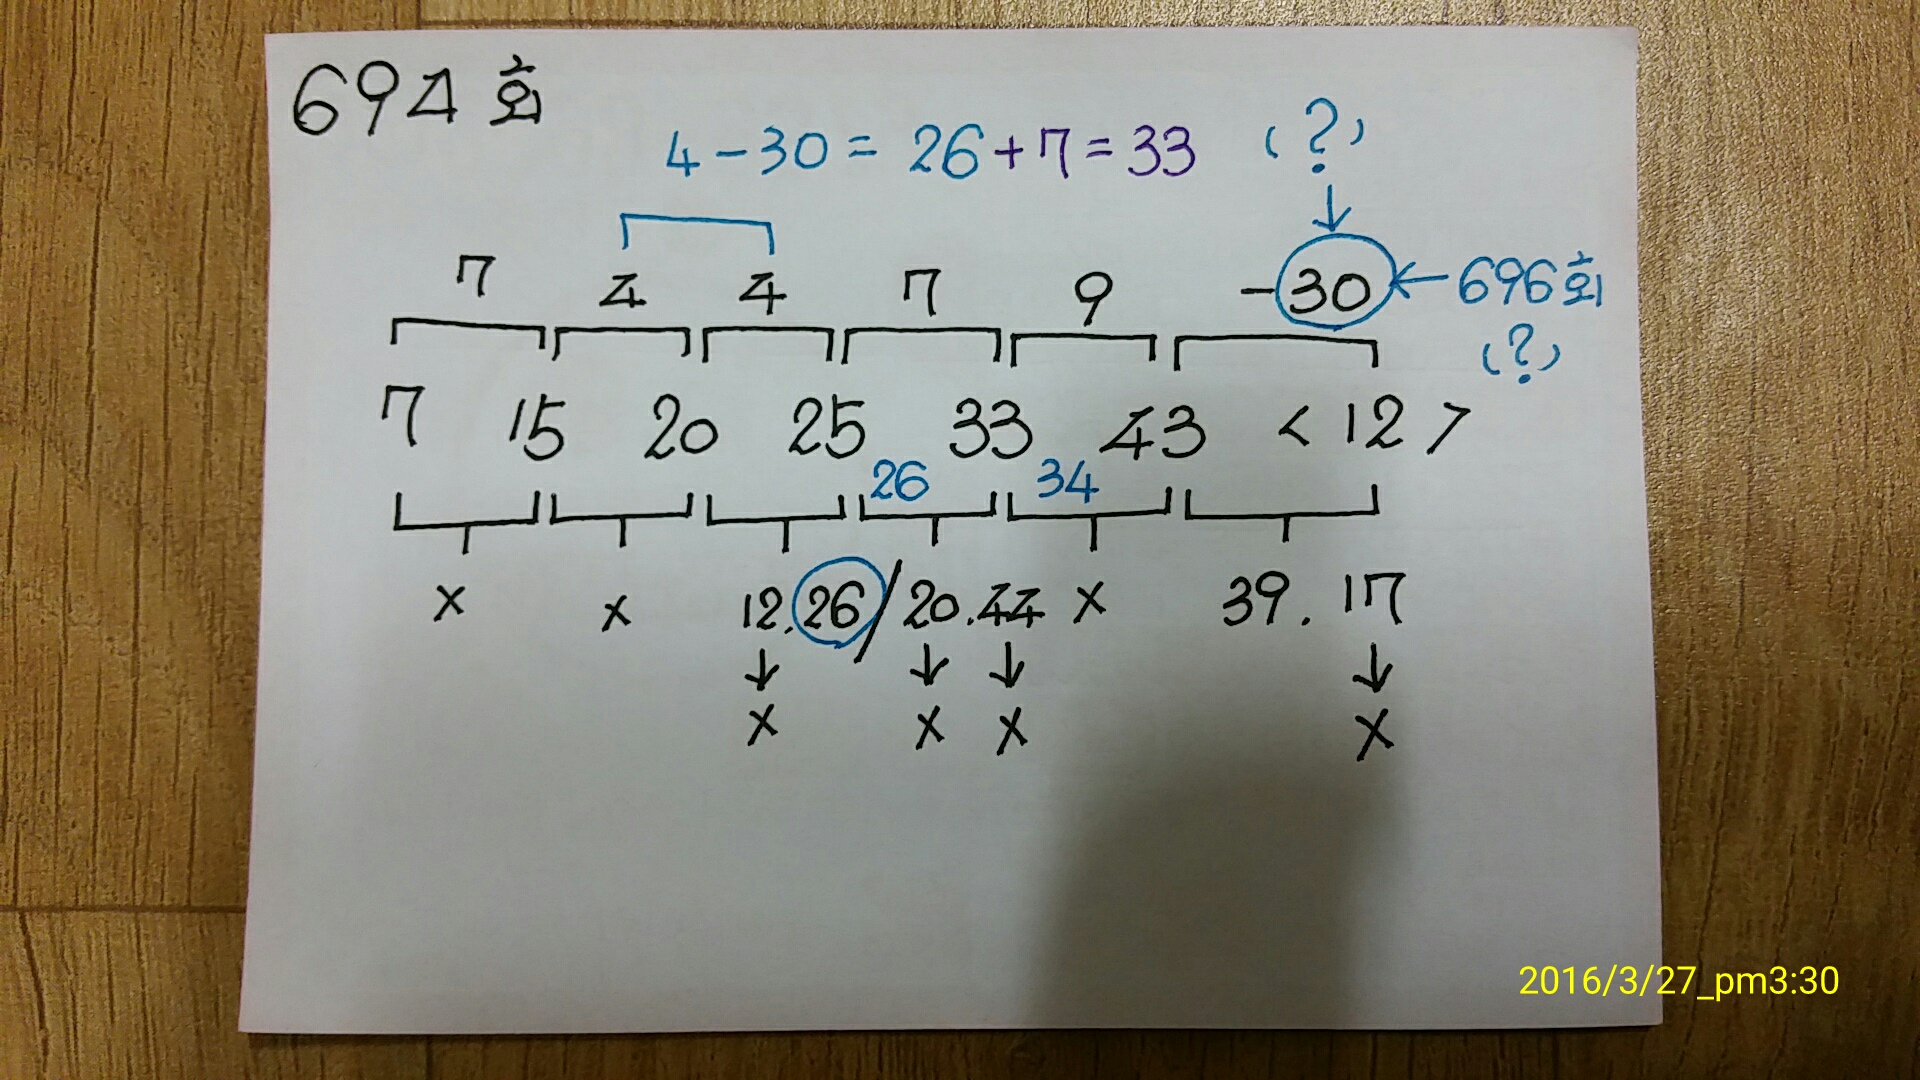 694회
4-30= 26+7=33 (?)
7 4 4 7 9 -30 ←696회
(?)
7 15 20 25 33 43 <12>
26 34
x x 12.26/20.44 x 39. 17
↓ ↓ ↓ ↓
x x x x
2016/3/27_pm3:30